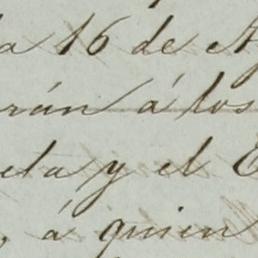 la 16 de A
rán á los
ela y el E
, á quien